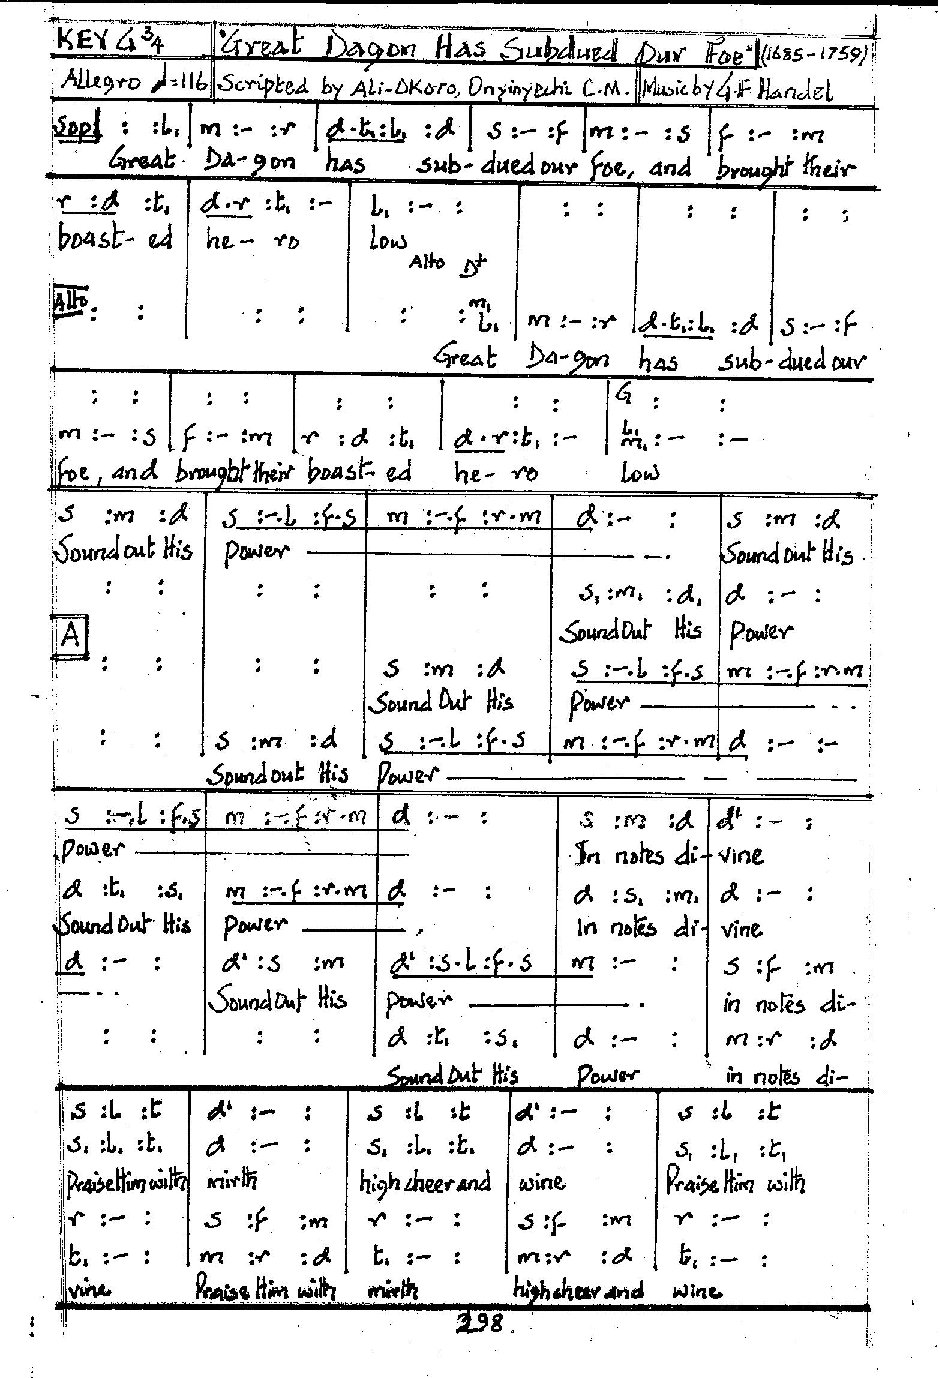 KEY G 3/4 "Great Dagon Has Subdued Our Foe" (1685-1759)
Allegro ♩=116 Scripted by Ali-Okoro, Onyinyechi C.M. Music by G.F Handel
Sop : :l₁ | m :- :r | d.t₁:l₁ :d | s :- :f | m :- :s | f :- :m
Great Da-gon has sub-dued our foe, and brought their
r :d :t₁ | d.r :t₁ :- | l₁ :- : | : : | : : | : :
boast-ed he-ro low
Alto Dt
Alto : : | : : | : :ᵐ¹l₁ | m :- :r | d.t₁:l₁ :d | s :- :f
Great Da-gon has sub-dued our
: : | : : | : : | : : | G : :
m :- :s | f :- :m | r :d :t₁ | d.r:t₁ :- | ˡ¹m₁ :- :-
foe, and brought their boast-ed he-ro low
s :m :d | s :-.l :f.s | m :-.f :r.m | d :- : | s :m :d
Sound out His Power Sound out His
: : | : : | : : | s₁ :m₁ :d₁ | d :- :
Sound Out His Power
A
: : | : : | s :m :d | s :-.l :f.s | m :-.f :r.m
Sound Out His Power
: : | s :m :d | s :-.l :f.s | m :-.f :r.m | d :- :-
Sound out His Power
s :-.l :f.s | m :-.f :r.m | d :- : | s :m :d | d' :- :
Power In notes di-vine
d :t₁ :s₁ | m :-.f :r.m | d :- : | d :s₁ :m₁ | d :- :
Sound Out His Power In notes di-vine
d :- : | d' :s :m | d' :s.l :f.s | m :- : | s :f :m
Sound Out His Power in notes di-
: : | : : | d :t₁ :s₁ | d :- : | m :r :d
Sound Out His Power in notes di-
s :l :t | d' :- : | s :l :t | d' :- : | s :l :t
s₁ :l₁ :t₁ | d :- : | s₁ :l₁ :t₁ | d :- : | s₁ :l₁ :t₁
Praise Him with mirth high cheer and wine Praise Him with
r :- : | s :f :m | r :- : | s :f :m | r :- :
t₁ :- : | m :r :d | t₁ :- : | m :r :d | t₁ :- :
vine Praise Him with mirth high cheer and wine
298